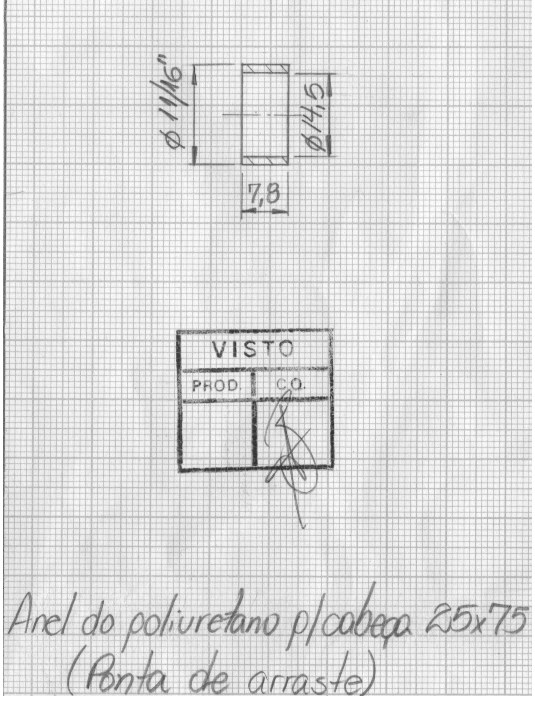 ø 11/16"
ø14,5
7,8
VISTO
PROD. C.Q.
Anel do poliuretano p/cabeça 25x75
(Ponta de arraste)